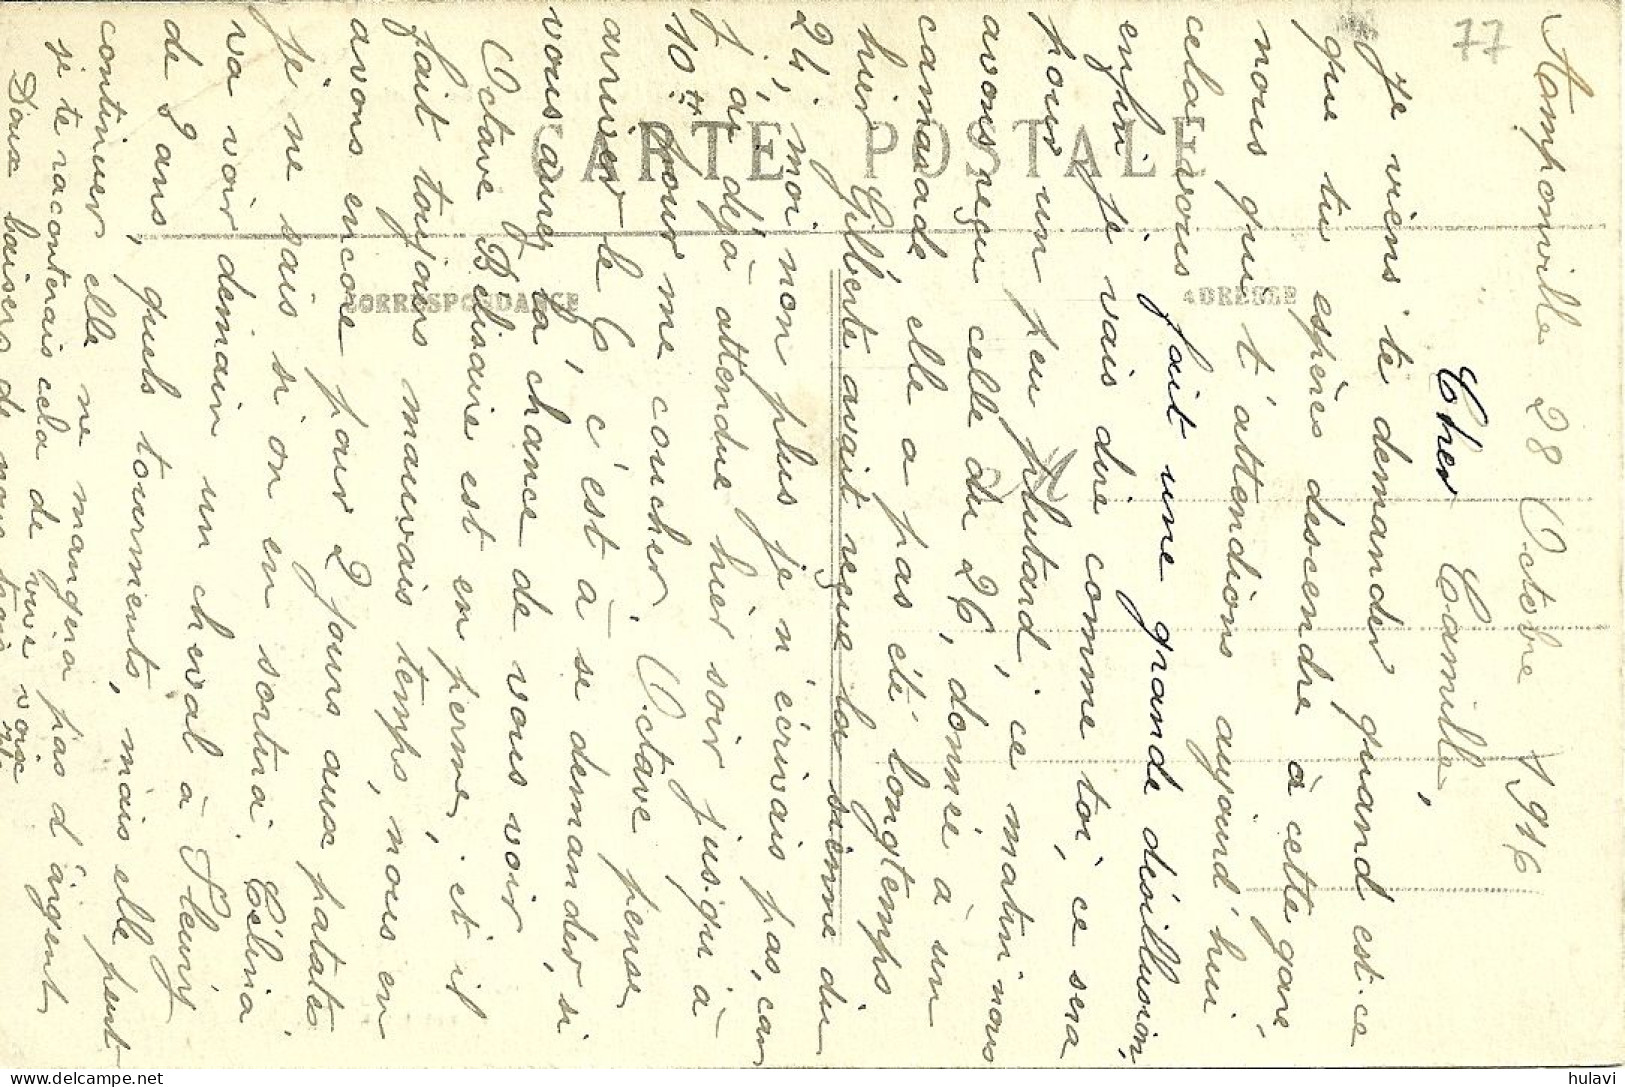 77
CARTE POSTALE
CORRESPONDANCE
ADRESSE
Hamponville 28 Octobre 1916
Cher Camille,
Je viens te demander quand est-ce
que tu espères descendre à cette gare,
nous qui t'attendions aujourd'hui
cela nous fait une grande désillusion,
enfin je vais dire comme toi, ce sera
pour un peu plutard, ce matin nous
avons reçu celle du 26, donnée à un
camarade elle a pas été longtemps
hier Gilberte avait reçue la sienne du
24, moi non plus je n'écrivais pas, car
j'ai déjà attendue hier soir jusqu'à
10 h pour me coucher, Octave pense
arriver le 6 c'est à se demander, si
vous aurez la chance de vous voir
Octave Bélisaire est en perme, et il
fait toujours mauvais temps, nous en
avons encore pour 2 jours aux patates
je ne sais si on en sortira. Célina
va voir demain un cheval à Fleury
de 8 ans, quels tourments, mais elle peut
continuer elle ne manquera pas d'argent
je te raconterais cela de vive voix
Doux baisers de nous trois
hulavi